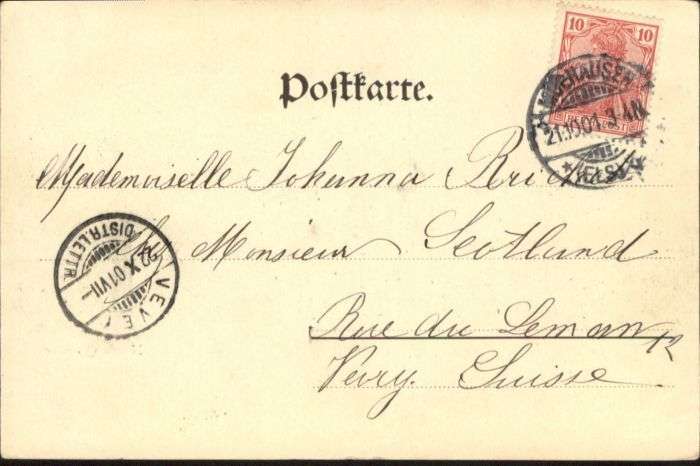 10 10
21.10.01. 3-4N.
(ELS)
Postkarte.
Mademoiselle Johanna
Monsieur Scotland
Rue du Leman 12
Vevey. Suisse
VEVEY
22.X.01 VII
DISTR. LETTR.